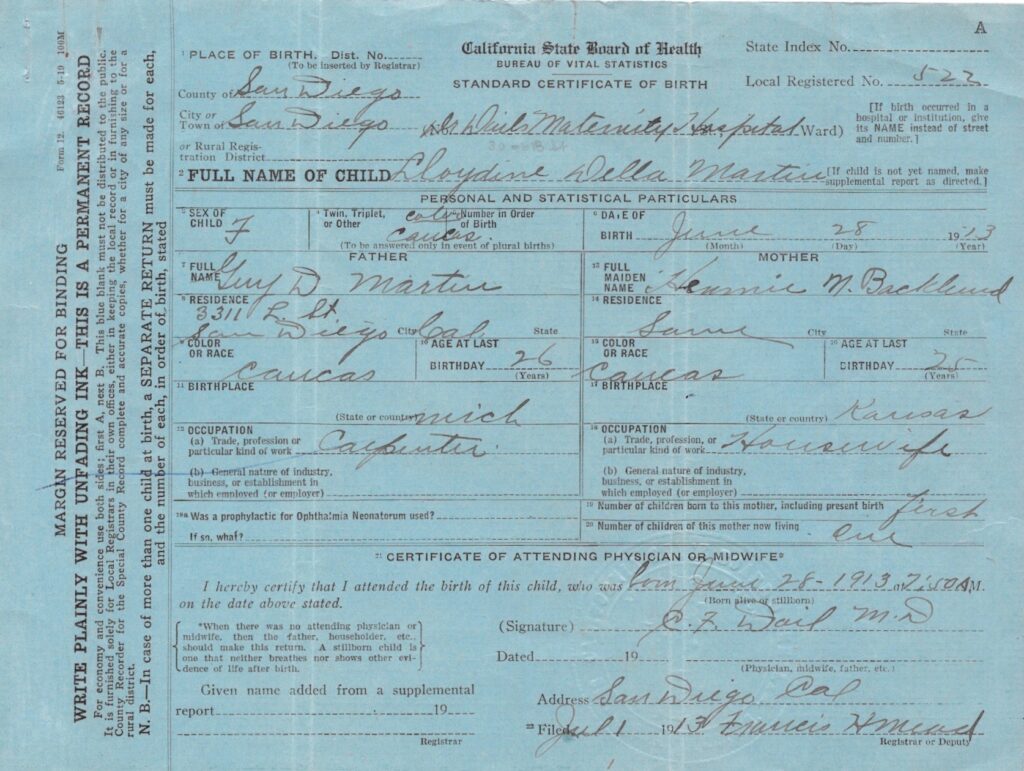 A
California State Board of Health
BUREAU OF VITAL STATISTICS
STANDARD CERTIFICATE OF BIRTH
State Index No.
Local Registered No. 522
1 PLACE OF BIRTH. Dist. No.
(To be inserted by Registrar)
County of San Diego
City or Town of San Diego Dr Dails Maternity Hospital Ward)
[If birth occurred in a hospital or institution, give its NAME instead of street and number.]
or Rural Registration District
2 FULL NAME OF CHILD Cloydine Della Martin
[If child is not yet named, make supplemental report as directed.]
PERSONAL AND STATISTICAL PARTICULARS
3 SEX OF CHILD F
4 Twin, Triplet, or Other
color caucas.
Number in Order of Birth
(To be answered only in event of plural births)
6 DATE OF BIRTH June 28 1913
(Month) (Day) (Year)
FATHER
7 FULL NAME Guy D Martin
8 RESIDENCE
3311 L. St
San Diego City Cal State
9 COLOR OR RACE caucas
10 AGE AT LAST BIRTHDAY 26 (Years)
11 BIRTHPLACE
(State or country) mich
12 OCCUPATION
(a) Trade, profession or particular kind of work Carpenter.
(b) General nature of industry, business, or establishment in which employed (or employer)
MOTHER
13 FULL MAIDEN NAME Hennie M. Backlund
14 RESIDENCE
Same City State
15 COLOR OR RACE Caucas
16 AGE AT LAST BIRTHDAY 25 (Years)
17 BIRTHPLACE
(State or country) Kansas
18 OCCUPATION
(a) Trade, profession, or particular kind of work Housewife
(b) General nature of industry, business, or establishment in which employed (or employer)
18a Was a prophylactic for Ophthalmia Neonatorum used?
If so, what?
19 Number of children born to this mother, including present birth first
20 Number of children of this mother now living One
21 CERTIFICATE OF ATTENDING PHYSICIAN OR MIDWIFE*
I hereby certify that I attended the birth of this child, who was born June 28-1913 at 7:50 A M.
(Born alive or stillborn)
on the date above stated.
*When there was no attending physician or midwife, then the father, householder, etc., should make this return. A stillborn child is one that neither breathes nor shows other evidence of life after birth.
(Signature) C. F. Dail M.D
Dated 19
(Physician, midwife, father, etc.)
Given name added from a supplemental
report 19
Registrar
Address San Diego Cal
22 Filed Jul 1 1913 Francis H Mead
Registrar or Deputy
Form 12. 46123 5-19 100M
MARGIN RESERVED FOR BINDING
WRITE PLAINLY WITH UNFADING INK—THIS IS A PERMANENT RECORD
For economy and convenience use both sides; first A, next B. This blue blank must not be distributed to the public.
It is furnished solely for Local Registrars in their own offices, either in keeping the local record or in furnishing to the
County Recorder for the Special County Record complete and accurate copies, whether for a city of any size or for a
rural district.
N. B.—In case of more than one child at birth, a SEPARATE RETURN must be made for each,
and the number of each, in order of birth, stated